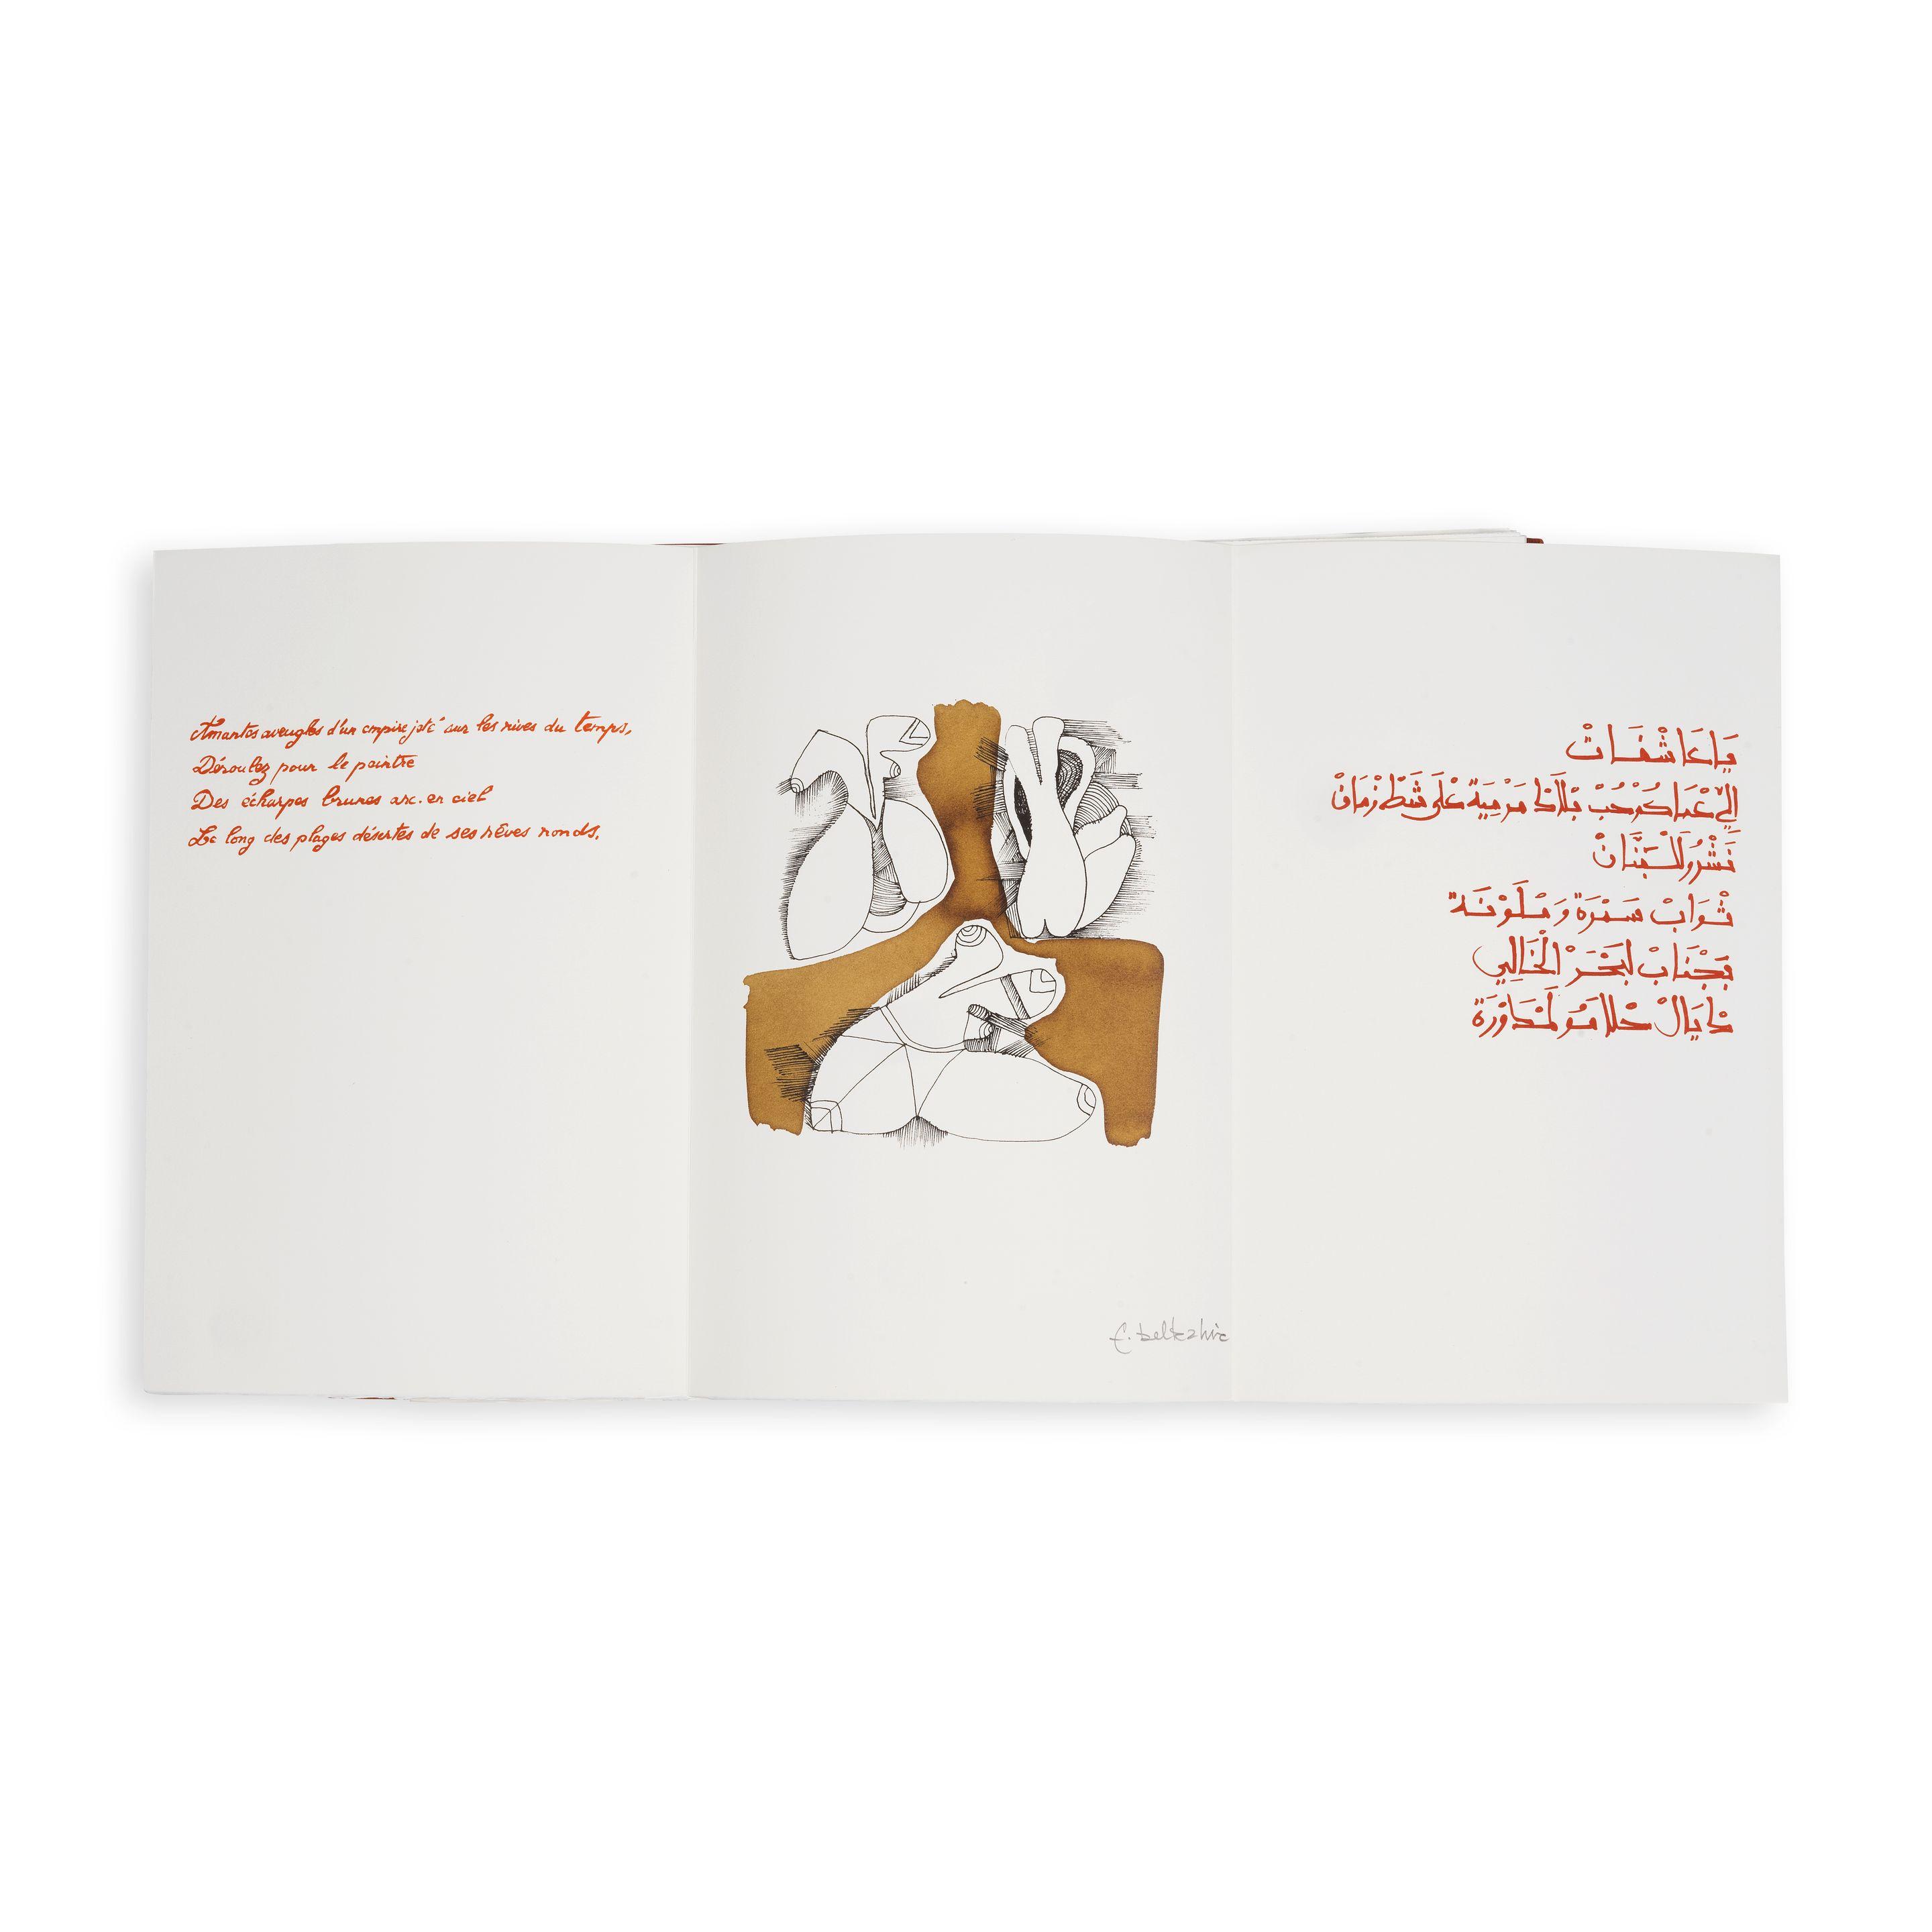 Amantes aveugles d'un empire jeté sur les rives du temps,
Déroulez pour le peintre
Des écharpes brunes arc. en ciel
Le long des plages désertes de ses rêves ronds.
f. belkahia
يَاعَاشْقَاتْ
اللِّي عْمَاكُمْ حُبْ بْلَادْ مَرْمِيَة عْلَى شَطْ زْمَانْ
نَشْرُو لَلْبَنَّانْ
ثْوَابْ سَمْرَة وَمْلَوْنَة
بَجْنَابْ لَبْحَرْ الْخَالِي
دْيَالْ حْلَامُو لَمْدَاوْرَة